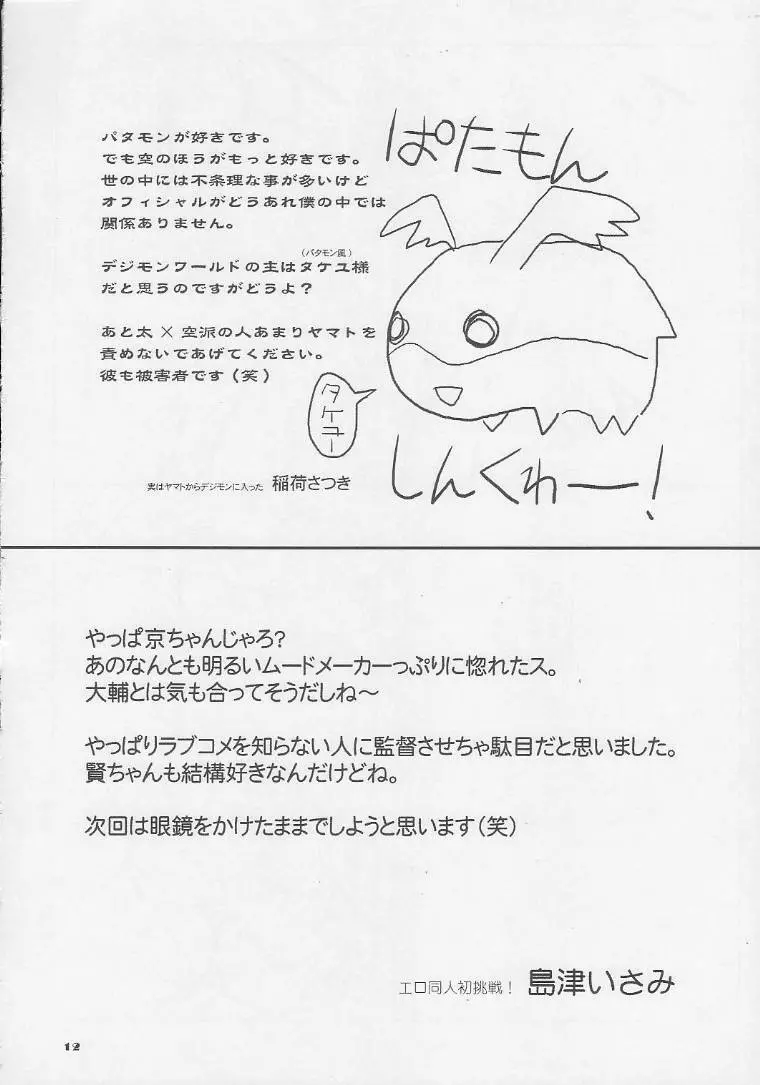 パタモンが好きです。
でも空のほうがもっと好きです。
世の中には不条理な事が多いけど
オフィシャルがどうあれ僕の中では
関係ありません。
(パタモン風)
デジモンワールドの主はタケユ様
だと思うのですがどうよ?
あと太×空派の人あまりヤマトを
責めないであげてください。
彼も被害者です(笑)
実はヤマトからデジモンに入った 稲荷さつき
ぱたもん
タケユー
しんくわー!
やっぱ京ちゃんじゃろ?
あのなんとも明るいムードメーカーっぷりに惚れたス。
大輔とは気も合ってそうだしね~
やっぱりラブコメを知らない人に監督させちゃ駄目だと思いました。
賢ちゃんも結構好きなんだけどね。
次回は眼鏡をかけたままでしようと思います(笑)
エロ同人初挑戦! 島津いさみ
12